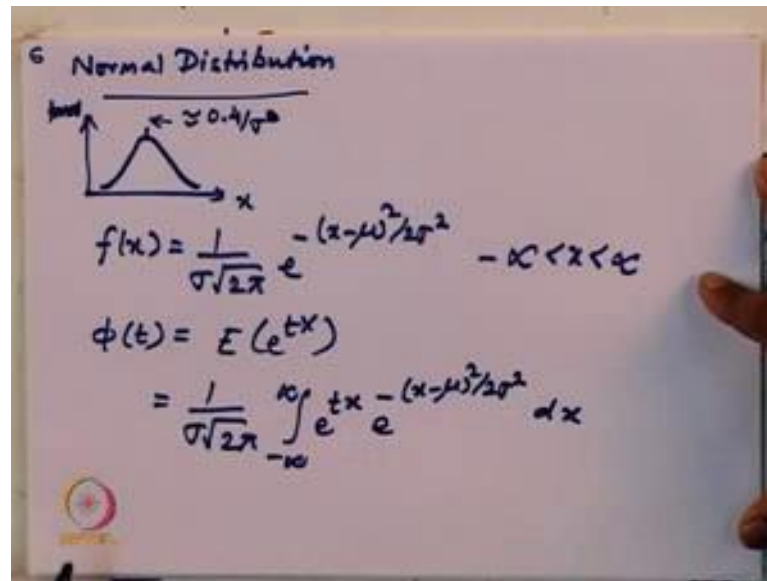 6 Normal Distribution
← ≈ 0.4/σ
x
f(x) = 1/(σ√2π) e^-(x-μ)²/2σ² -∞ < x < ∞
φ(t) = E(e^tX)
= 1/(σ√2π) ∫_-∞^∞ e^tx e^-(x-μ)²/2σ² dx